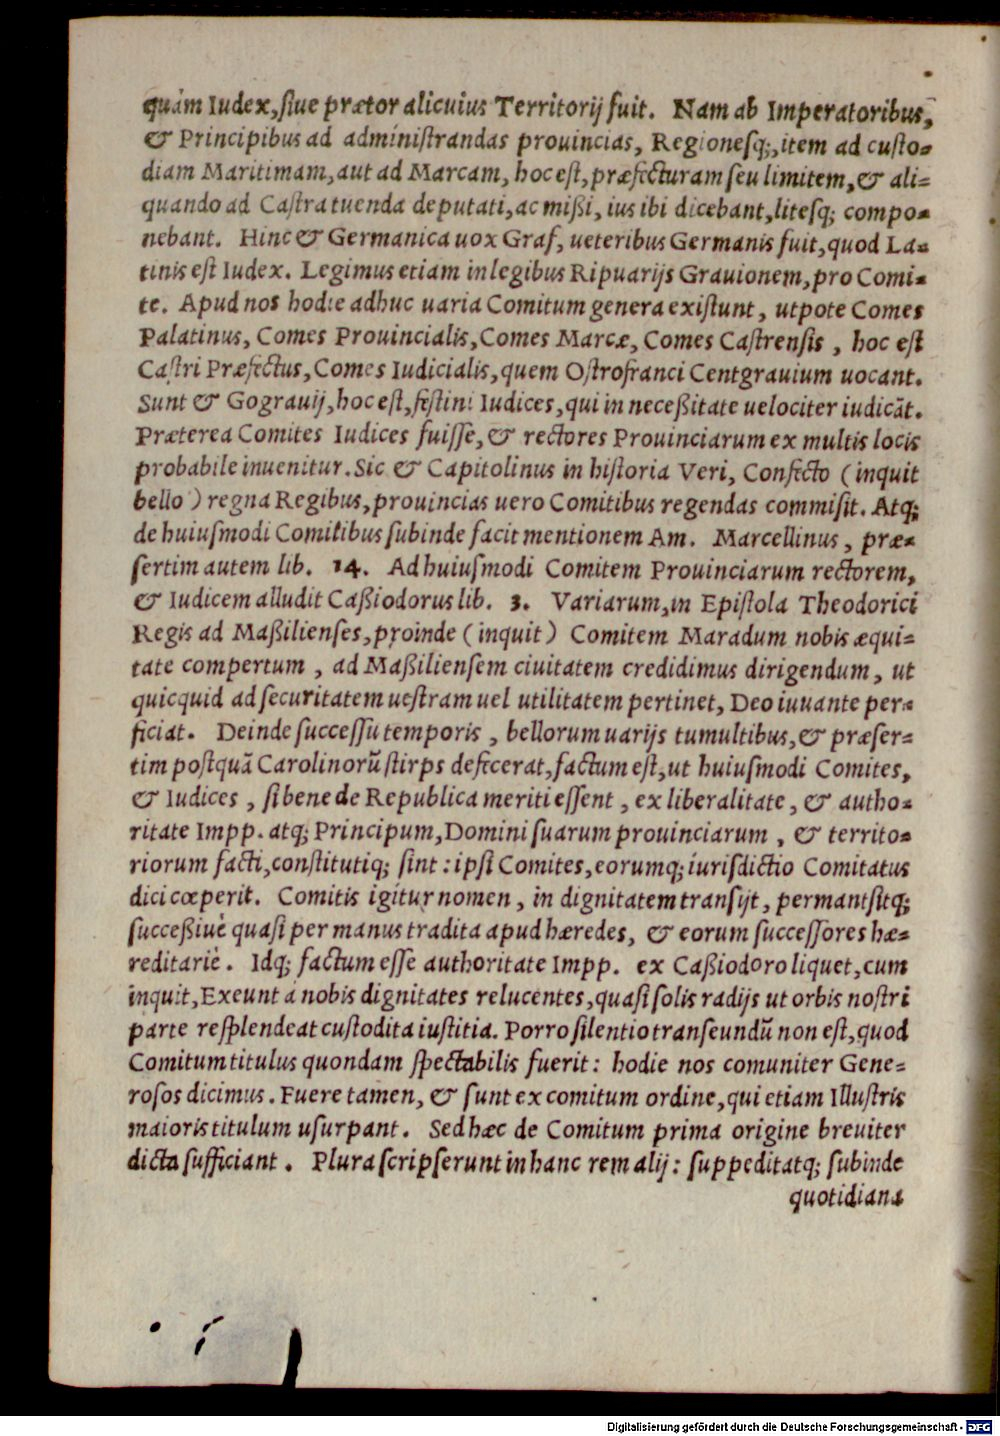 quám Iudex, ſiue prætor alicuius Territorij fuit. Nam ab Imperatoribus,
& Principibus ad adminiſtrandas prouincias, Regionesq;, item ad cuſto-
diam Maritimam, aut ad Marcam, hoc eſt, præfecturam ſeu limitem, & ali-
quando ad Caſtra tuenda deputati, ac mißi, ius ibi dicebant, litesq; compo-
nebant. Hinc & Germanica uox Graf, ueteribus Germanis fuit, quod La-
tinis eſt Iudex. Legimus etiam in legibus Ripuarijs Grauionem, pro Comi-
te. Apud nos hodie adhuc uaria Comitum genera exiſtunt, utpote Comes
Palatinus, Comes Prouincialis, Comes Marcæ, Comes Caſtrenſis, hoc eſt
Caſtri Præfectus, Comes Iudicialis, quem Oſtrofranci Centgrauium uocant.
Sunt & Gograuij, hoc eſt, feſtini Iudices, qui in neceßitate uelociter iudicāt.
Præterea Comites Iudices fuiſſe, & rectores Prouinciarum ex multis locis
probabile inuenitur. Sic & Capitolinus in hiſtoria Veri, Confecto (inquit
bello) regna Regibus, prouincias uero Comitibus regendas commiſit. Atq;
de huiuſmodi Comitibus ſubinde facit mentionem Am. Marcellinus, præ-
ſertim autem lib. 14. Ad huiuſmodi Comitem Prouinciarum rectorem,
& Iudicem alludit Caßiodorus lib. 3. Variarum, in Epiſtola Theodorici
Regis ad Maßilienſes, proinde (inquit) Comitem Maradum nobis æqui-
tate compertum, ad Maßilienſem ciuitatem credidimus dirigendum, ut
quicquid ad ſecuritatem ueſtram uel utilitatem pertinet, Deo iuuante per-
ficiat. Deinde ſucceſſu temporis, bellorum uarijs tumultibus, & præſer-
tim poſtquā Carolinorū ſtirps defecerat, factum eſt, ut huiuſmodi Comites,
& Iudices, ſi bene de Republica meriti eſſent, ex liberalitate, & autho-
ritate Impp. atq; Principum, Domini ſuarum prouinciarum, & territo-
riorum facti, conſtitutiq; ſint: ipſi Comites, eorumq; iuriſdictio Comitatus
dici cœperit. Comitis igitur nomen, in dignitatem tranſijt, permanſitq;
ſucceßiuè quaſi per manus tradita apud hæredes, & eorum ſucceſſores hæ-
reditariè. Idq; factum eſſe authoritate Impp. ex Caßiodoro liquet, cum
inquit, Exeunt á nobis dignitates relucentes, quaſi ſolis radijs ut orbis noſtri
parte reſplendeat cuſtodita iuſtitia. Porro ſilentio tranſeundū non eſt, quod
Comitum titulus quondam ſpectabilis fuerit: hodie nos comuniter Gene-
roſos dicimus. Fuere tamen, & ſunt ex comitum ordine, qui etiam Illuſtris
maioris titulum uſurpant. Sed hæc de Comitum prima origine breuiter
dicta ſufficiant. Plura ſcripſerunt in hanc rem alij: ſuppeditatq; ſubinde
quotidiana
Digitalisierung gefördert durch die Deutsche Forschungsgemeinschaft - DFG